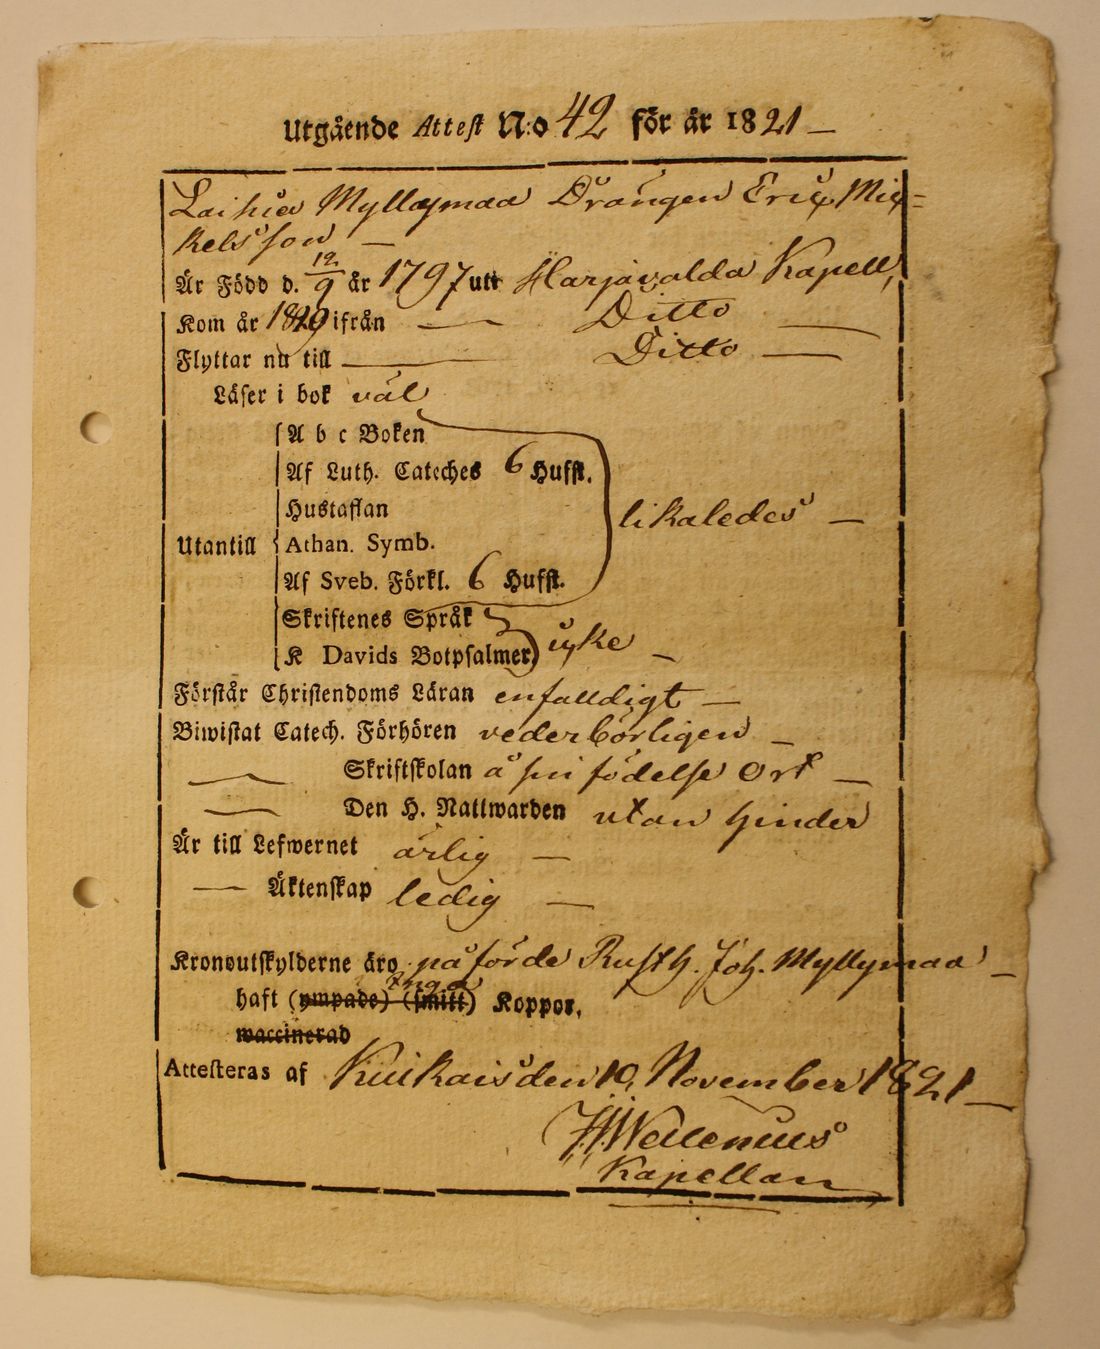 Utgående Attest N:o 42 för år 1821 —
Laihia Myllymaa Drängen Eric Mic=
kelsson —
Är Född d. 12/9 år 1797 uti Harjavalda Kapell,
Kom år ifrån — Ditto —
Flyttar nu till — Ditto —
Läser i bok väl
A b c Boken
Af Luth. Cateches 6 Hufst.
Hustaflan
likaledes —
Utantill Athan. Symb.
Af Sveb. Förkl. 6 Hufst.
Skriftenes Språk
K Davids Botpsalmer) icke —
Förstår Christendoms Läran enfalldigt —
Biwistat Catech. Förhören vederbörligen —
— Skriftskolan å sin födelse Ort —
— Den H. Nattwarden utan hinder
Är till Lefwernet ärlig —
— Äktenskap ledig —
Kronoutskylderne äro påförde Rusth. Joh. Myllymaa —
inga
haft (ympade) (smitt) Koppor,
waccinerad
Attesteras af den 10, November 1821 —
Kapellan